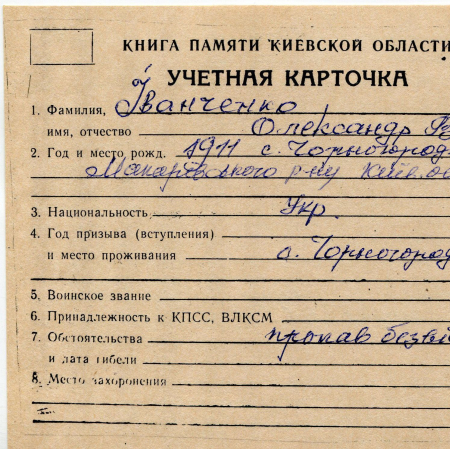 КНИГА ПАМЯТИ КИЕВСКОЙ ОБЛАСТИ
УЧЕТНАЯ КАРТОЧКА
1. Фамилия, Іванченко
имя, отчество Олександр
2. Год и место рожд. 1911 с. Чорногород
Макарівського р-ну Київ. об
3. Национальность Укр.
4. Год призыва (вступления)
и место проживания с. Чорногород
5. Воинское звание
6. Принадлежность к КПСС, ВЛКСМ
7. Обстоятельства пропав безві
и дата гибели
8. Место захоронения